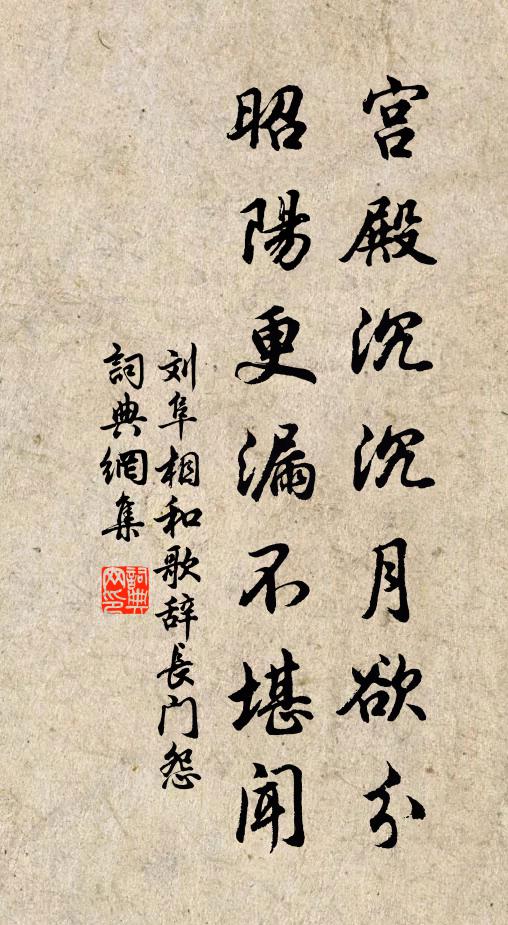 宫殿沉沉月欲分
昭陽更漏不堪聞
刘阜相和歌辞長门怨
詞典網集
詞典
网印